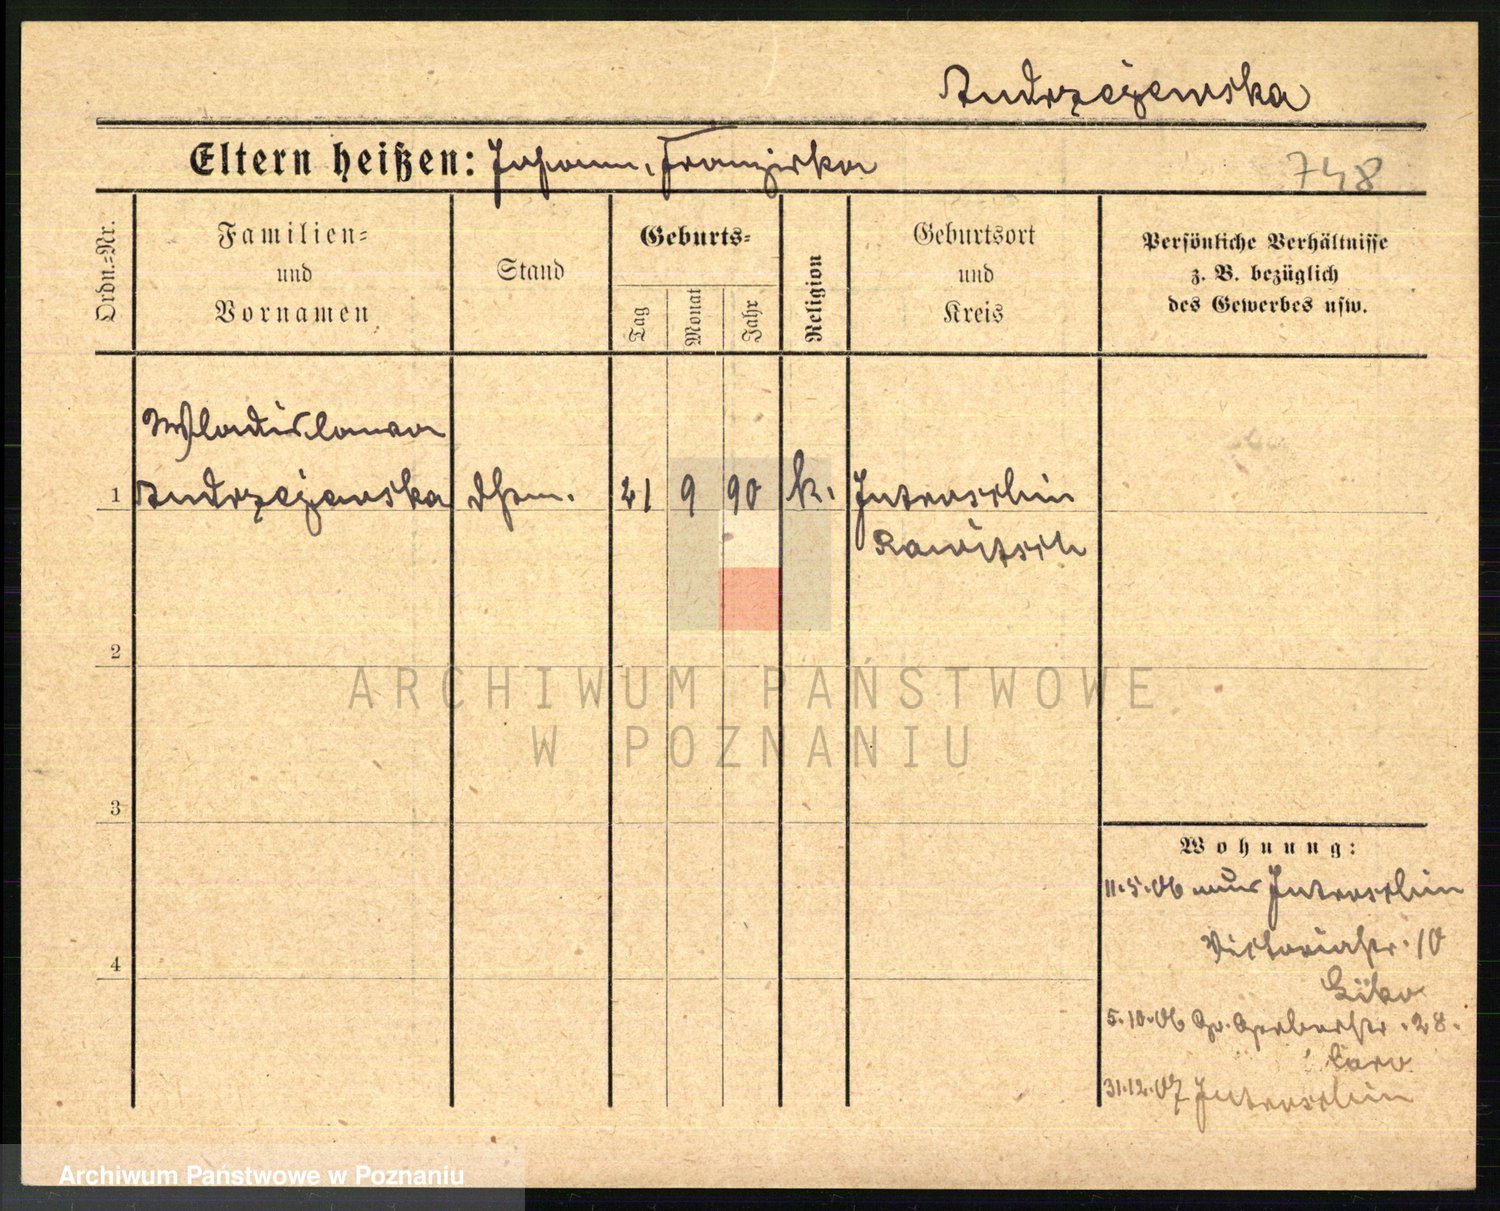 Andrzejewska
Eltern heißen: Johann, Franziska
748
Ordn.-Nr.
Familien-
und
Vornamen
Stand
Geburts-
Tag
Monat
Jahr
Religion
Geburtsort
und
Kreis
Persönliche Verhältnisse
z. B. bezüglich
des Gewerbes usw.
Wladislawa
1 Andrzejewska 21 9 90 k. Jutroschin
Rawitsch
2
ARCHIWUM PAŃSTWOWE
W POZNANIU
3
Wohnung:
11.5.06 aus Jutroschin
Victoriastr. 10
4
5.10.06 Gr. Gerberstr. 28.
Caro
31.12.07 Jutroschin
Archiwum Państwowe w Poznaniu